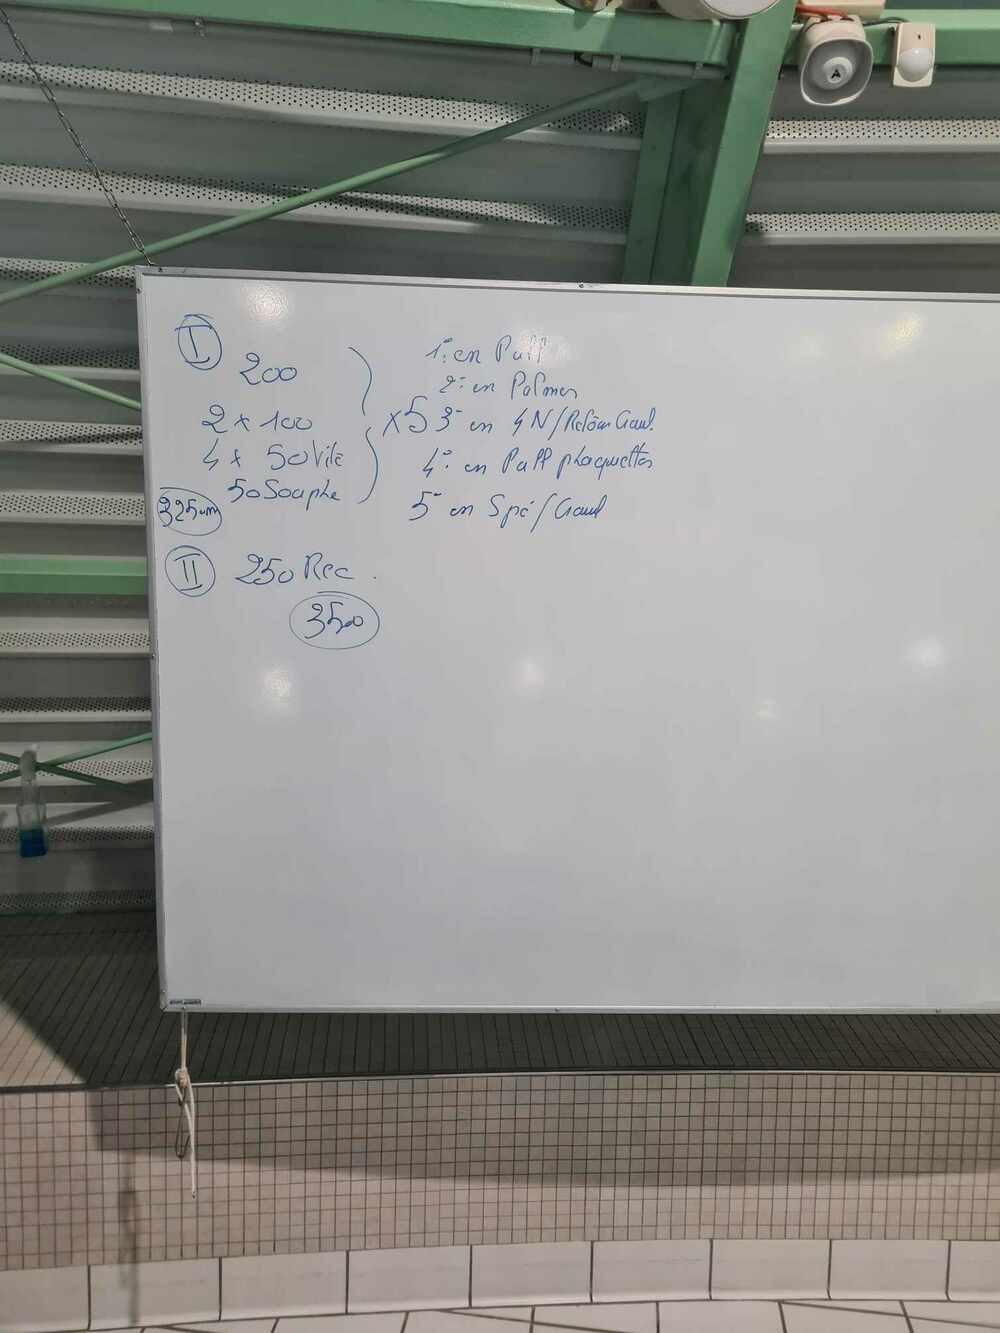 I
200
2 x 100
4 x 50 Vite
50 Souple
x5
1° en Pull
2° en Palmes
3° en 4N/Retour Crawl.
4° en Pull plaquettes
5° en Spé/Crawl
3250m
II 250 Rec.
3500
A